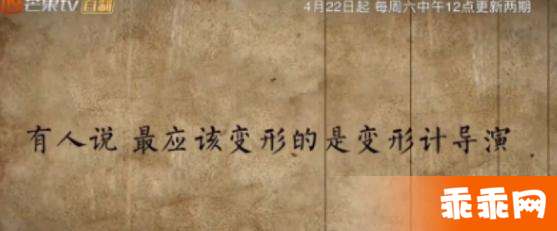 芒果tv 自制
4月22日起 每周六中午12点更新两期
有人说 最应该变形的是变形计导演
乖乖网